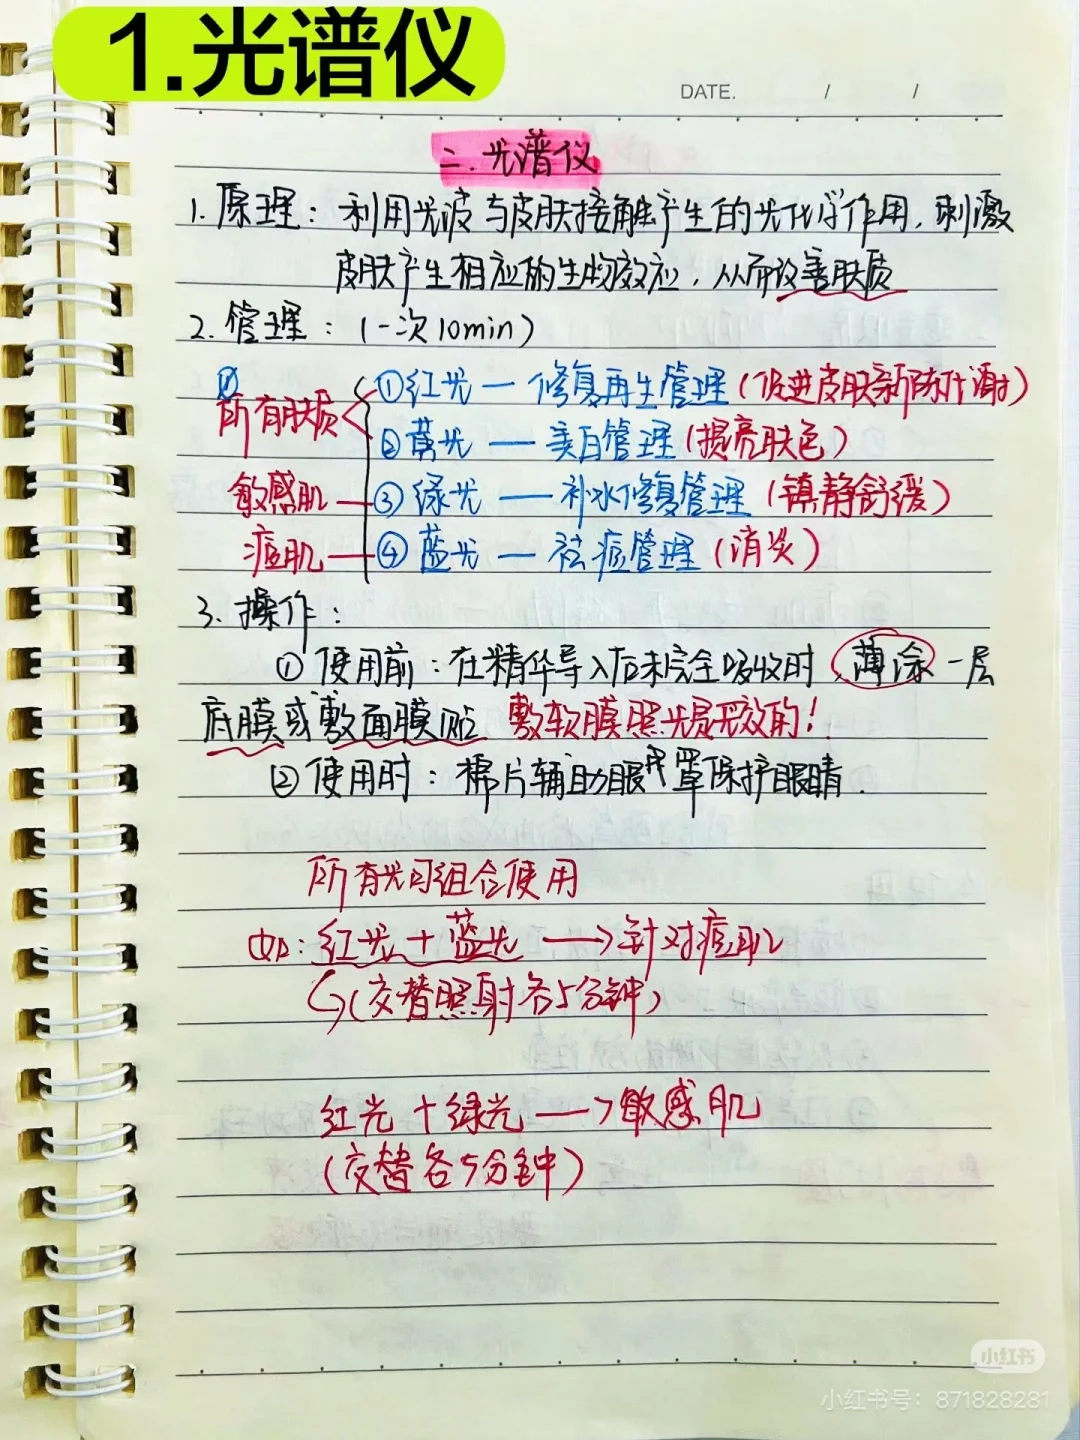 1.光谱仪
DATE. / /
二.光谱仪
1.原理：利用光波与皮肤接触产生的光化学作用，刺激
皮肤产生相应的生物效应，从而改善肤质
2.管理：(一次10min)
所有肤质 ①红光—修复再生管理(促进皮肤新陈代谢)
②黄光—美白管理(提亮肤色)
敏感肌—③绿光—补水修复管理(镇静舒缓)
痘肌—④蓝光—祛痘管理(消炎)
3.操作：
①使用前：在精华导入后未完全吸收时，薄涂一层
底膜或敷面膜贴 敷软膜照光是无效的！
②使用时：棉片辅助眼罩保护眼睛.
所有光可组合使用
如：红光+蓝光→针对痘肌
(交替照射各5分钟)
红光+绿光→敏感肌
(交替各5分钟)
小红书
小红书号：871828281